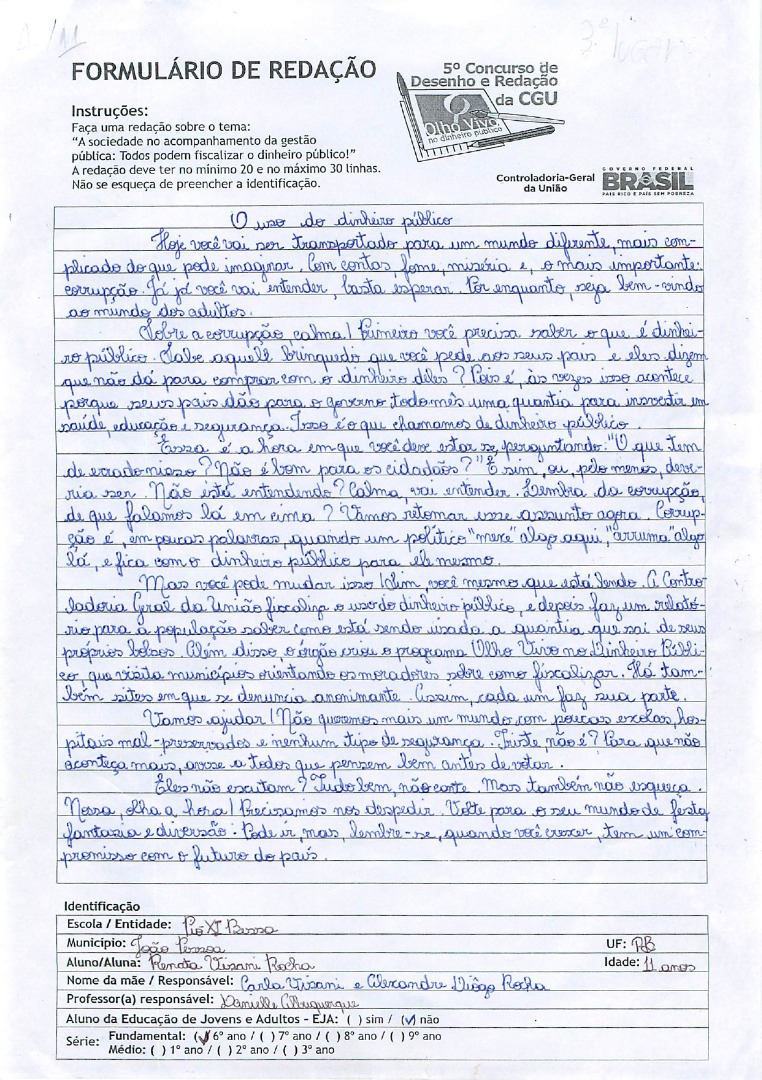 3º lugar
FORMULÁRIO DE REDAÇÃO
5º Concurso de
Desenho e Redação
da CGU
Olho Vivo
no dinheiro público
Instruções:
Faça uma redação sobre o tema:
"A sociedade no acompanhamento da gestão
pública: Todos podem fiscalizar o dinheiro público!"
A redação deve ter no mínimo 20 e no máximo 30 linhas.
Não se esqueça de preencher a identificação.
Controladoria-Geral
da União
GOVERNO FEDERAL
BRASIL
PAÍS RICO É PAÍS SEM POBREZA
O uso do dinheiro público
Hoje você vai ser transportado para um mundo diferente, mais com-
plicado do que pode imaginar. Com contas, fome, miséria e, o mais importante:
corrupção. Já já você vai entender, basta esperar. Por enquanto, seja bem-vindo
ao mundo dos adultos.
Sobre a corrupção, calma! Primeiro você precisa saber o que é dinhei-
ro público. Sabe aquele brinquedo que você pede aos seus pais e eles dizem
que não dá para comprar com o dinheiro deles? Pois é, às vezes isso acontece
porque seus pais dão para o governo todo mês uma quantia para investir em
saúde, educação e segurança. Isso é o que chamamos de dinheiro público.
Essa é a hora em que você deve estar se perguntando: "O que tem
de errado nisso? Não é bom para os cidadãos?" É sim, ou, pelo menos, deve-
ria ser. Não está entendendo? Calma, vai entender. Lembra da corrupção,
de que falamos lá em cima? Vamos retomar esse assunto agora. Corrup-
ção é, em poucas palavras, quando um político "mexe" algo aqui, "arruma" algo
lá, e fica com o dinheiro público para ele mesmo.
Mas você pode mudar isso! Sim, você mesmo que está lendo. A Contro-
ladoria Geral da União fiscaliza o uso do dinheiro público, e depois faz um relató-
rio para a população saber como está sendo usada a quantia que sai de seus
próprios bolsos. Além disso o órgão criou o programa Olho Vivo no Dinheiro Públi-
co, que visita municípios orientando os moradores sobre como fiscalizar. Há tam-
bém sites em que se denuncia anonimante. Assim, cada um faz sua parte.
Vamos ajudar! Não queremos mais um mundo com poucas escolas, hos-
pitais mal-preservados e nenhum tipo de segurança. Triste não é? Para que não
aconteça mais, avise a todos que pensem bem antes de votar.
Eles não escutam? Tudo bem, não conte. Mas também não esqueça.
Nossa, olha a hora! Precisamos nos despedir. Volte para o seu mundo de festa,
fantasia e diversão. Pode ir, mas, lembre-se, quando você crescer, tem um com-
promisso com o futuro do país.
Identificação
Escola / Entidade: Pio XI Bessa
Município: João Pessoa UF: PB
Aluno/Aluna: Renata Visani Rocha Idade: 11 anos
Nome da mãe / Responsável: Carla Visani e Alexandre Diôgo Rocha
Professor(a) responsável: Danielle Albuquerque
Aluno da Educação de Jovens e Adultos - EJA: ( ) sim / (✓) não
Série: Fundamental: (✓) 6º ano / ( ) 7º ano / ( ) 8º ano / ( ) 9º ano
Médio: ( ) 1º ano / ( ) 2º ano / ( ) 3º ano